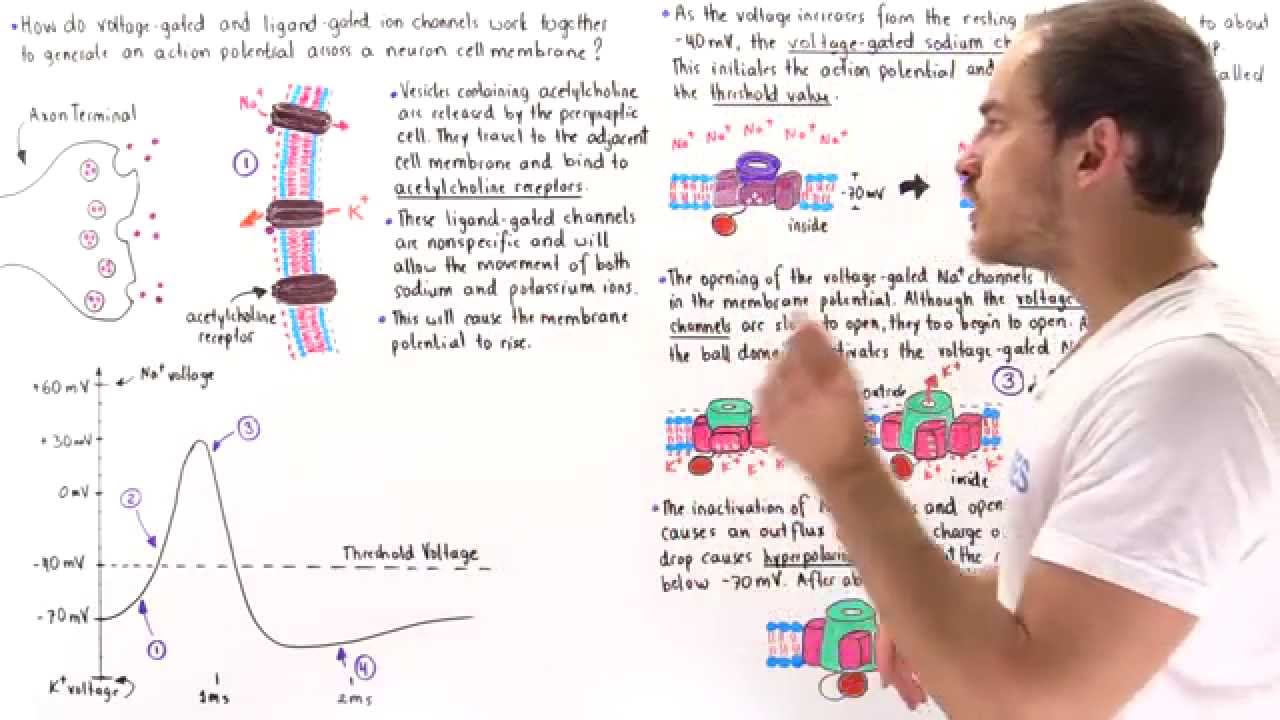 • How do voltage-gated and ligand-gated ion channels work together
to generate an action potential across a neuron cell membrane?
Axon Terminal
Na⁺
①
K⁺
acetylcholine
receptor
• Vesicles containing acetylcholine
are released by the presynaptic
cell. They travel to the adjacent
cell membrane and bind to
acetylcholine receptors.
• These ligand-gated channels
are nonspecific and will
allow the movement of both
sodium and potassium ions.
• This will cause the membrane
potential to rise.
+60 mV
Na⁺ voltage
+30 mV
③
0 mV
②
-40 mV
Threshold Voltage
-70 mV
①
④
K⁺ voltage
1ms
2ms
• As the voltage increases from the resting to about
-40 mV, the voltage-gated sodium
This initiates the action potential and called
the threshold value.
Na⁺ Na⁺ Na⁺ Na⁺ Na⁺
-70 mV
inside
• The opening of the voltage-gated Na⁺ channels
in the membrane potential. Although the voltage
channels are to open, they too begin to open.
the ball the voltage-gated
K⁺
③
K⁺ K⁺ K⁺
K⁺ K⁺
inside
• The inactivation of and open
causes an outflux charge
drop causes the
below -70 mV. After
ES